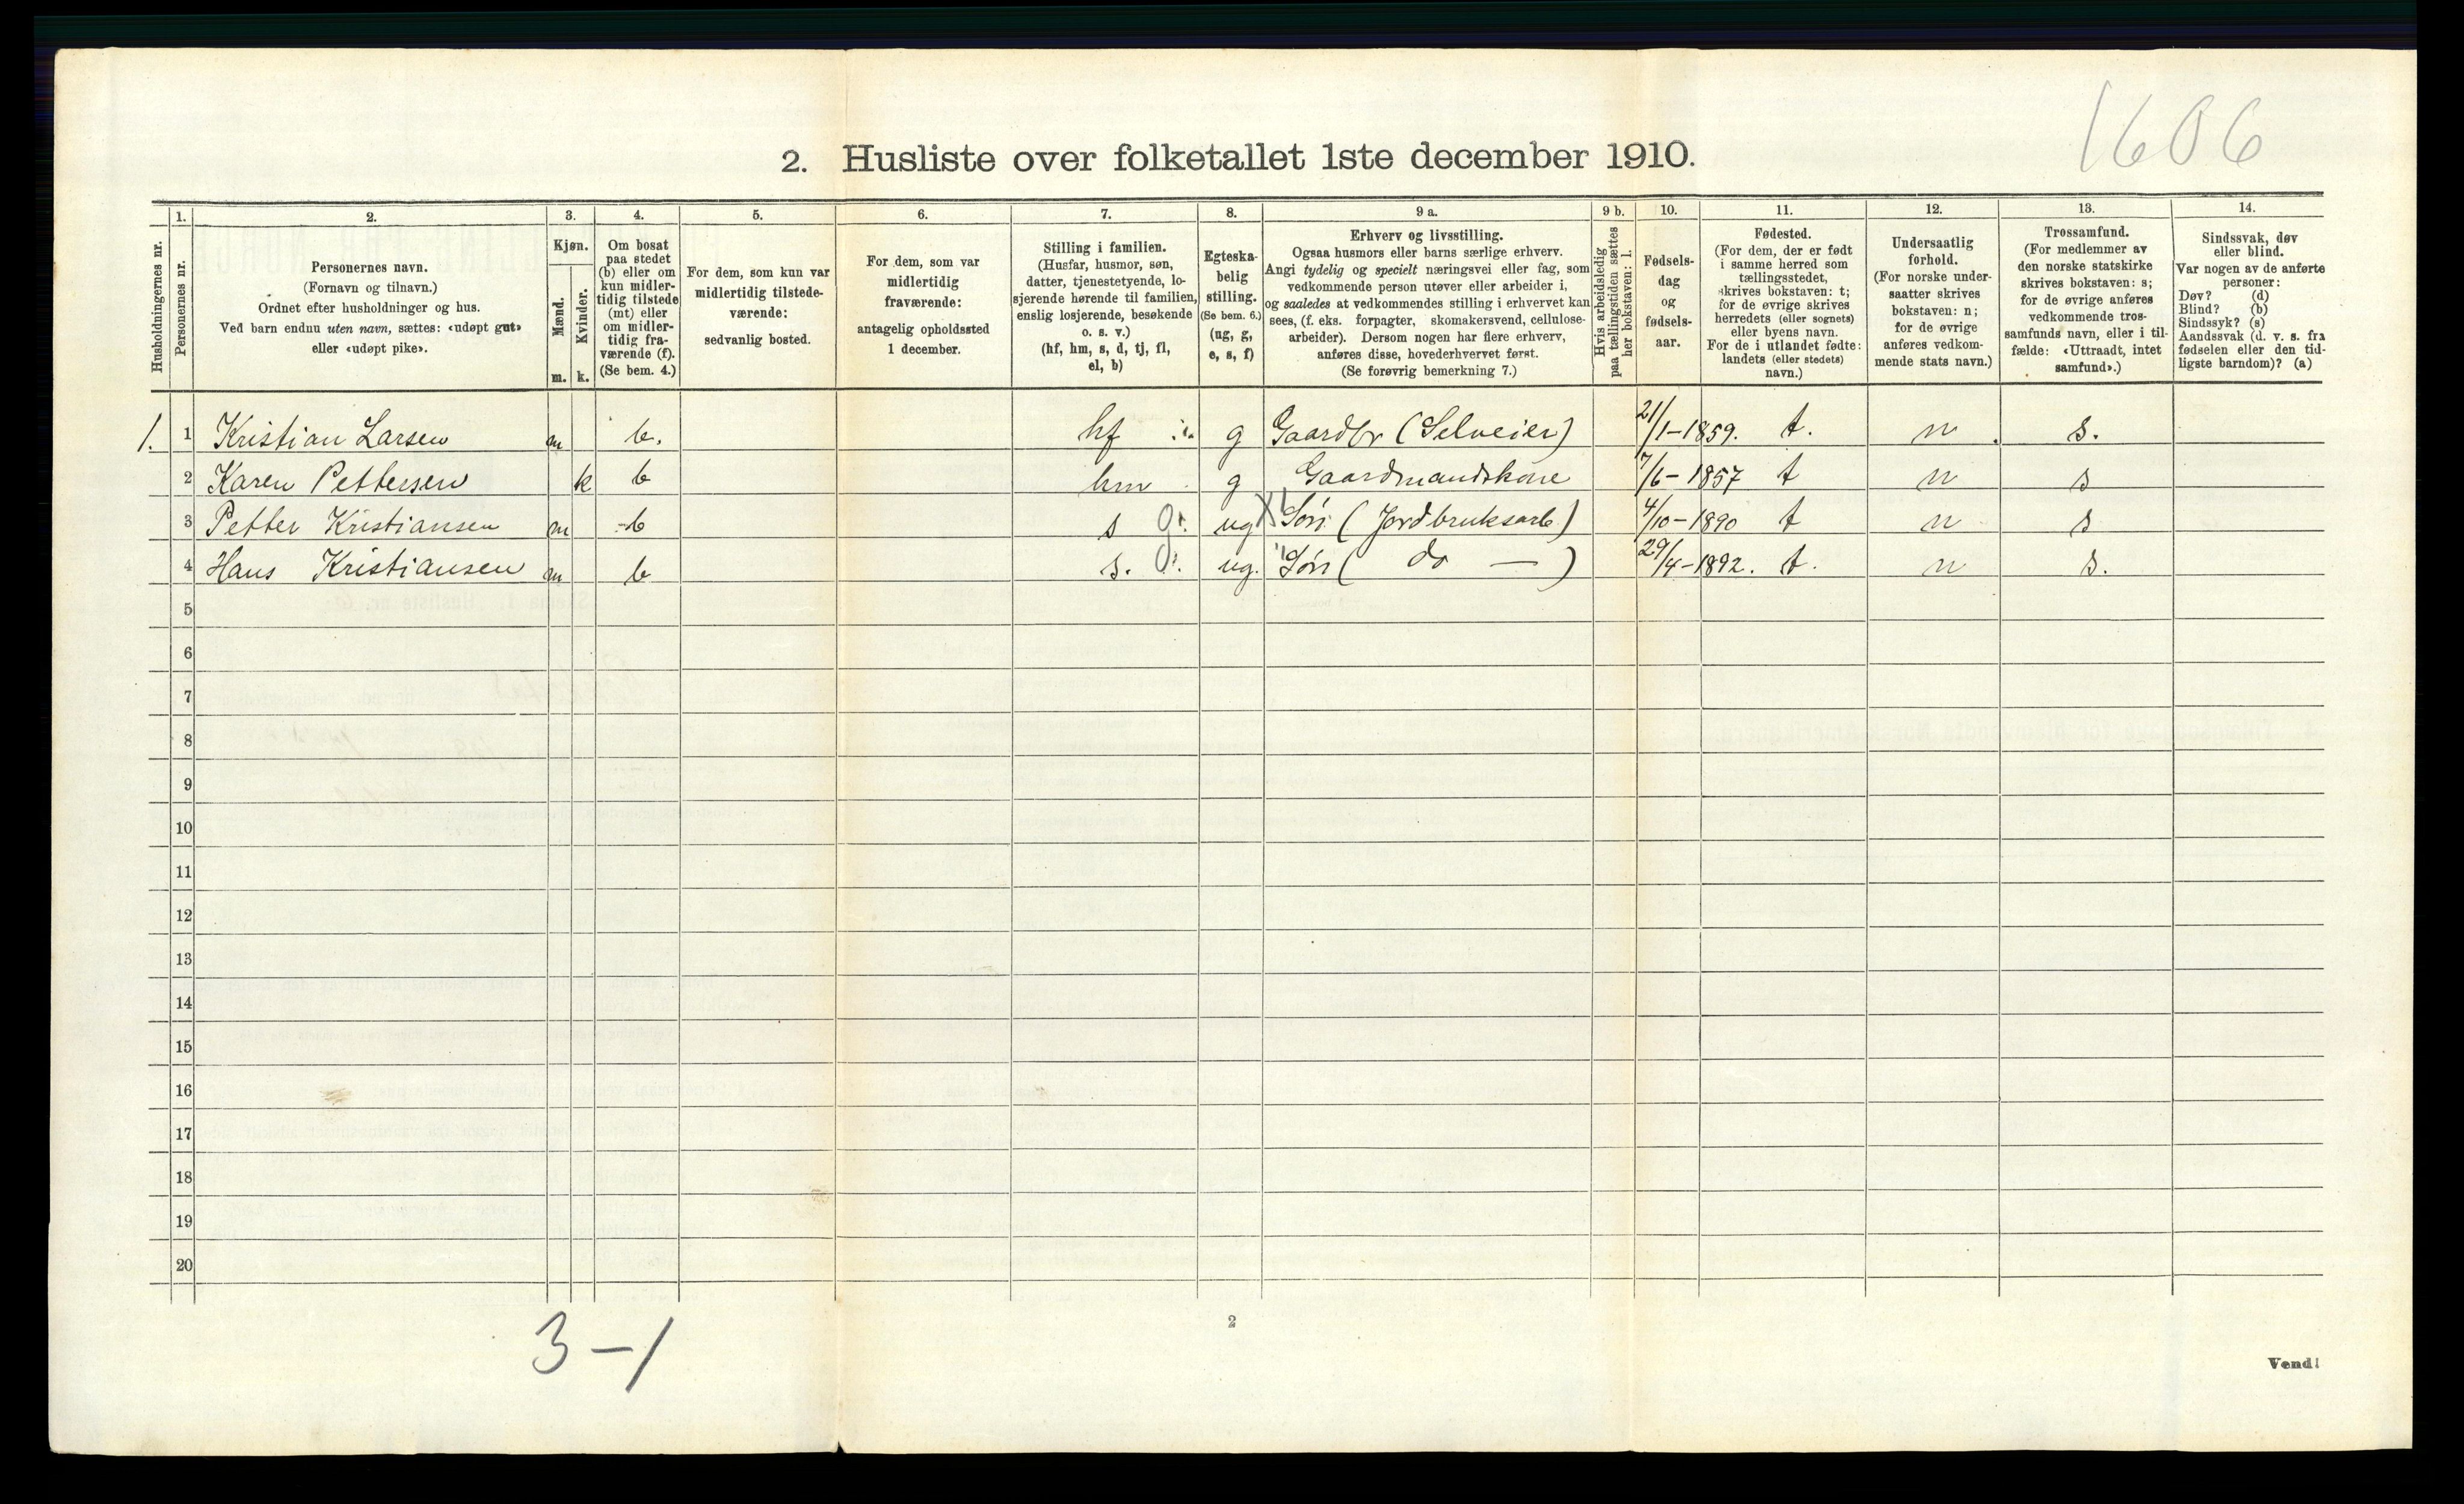 1606
2. Husliste over folketallet 1ste december 1910.
Husholdningernes nr.
1. Personernes nr.
2. Personernes navn.
(Fornavn og tilnavn.)
Ordnet efter husholdninger og hus.
Ved barn endnu uten navn, sættes: «udøpt gut»
eller «udøpt pike».
3. Kjøn.
Mænd. m.
Kvinder. k.
4. Om bosat
paa stedet
(b) eller om
kun midler-
tidig tilstede
(mt) eller
om midler-
tidig fra-
værende (f).
(Se bem. 4.)
5. For dem, som kun var
midlertidig tilstede-
værende:
sedvanlig bosted.
6. For dem, som var
midlertidig
fraværende:
antagelig opholdssted
1 december.
7. Stilling i familien.
(Husfar, husmor, søn,
datter, tjenestetyende, lo-
sjerende hørende til familien,
enslig losjerende, besøkende
o. s. v.)
(hf, hm, s, d, tj, fl,
el, b)
8. Egteska-
belig
stilling.
(Se bem. 6.)
(ug, g,
e, s, f)
9 a. Erhverv og livsstilling.
Ogsaa husmors eller barns særlige erhverv.
Angi tydelig og specielt næringsvei eller fag, som
vedkommende person utøver eller arbeider i,
og saaledes at vedkommendes stilling i erhvervet kan
sees, (f. eks. forpagter, skomakersvend, cellulose-
arbeider). Dersom nogen har flere erhverv,
anføres disse, hovederhvervet først.
(Se forøvrig bemerkning 7.)
9 b. Hvis arbeidsledig
paa tællingstiden sættes
her bokstaven: l.
10. Fødsels-
dag
og
fødsels-
aar.
11. Fødested.
(For dem, der er født
i samme herred som
tællingsstedet,
skrives bokstaven: t;
for de øvrige skrives
herredets (eller sognets)
eller byens navn.
For de i utlandet fødte:
landets (eller stedets)
navn.)
12. Undersaatlig
forhold.
(For norske under-
saatter skrives
bokstaven: n;
for de øvrige
anføres vedkom-
mende stats navn.)
13. Trossamfund.
(For medlemmer av
den norske statskirke
skrives bokstaven: s;
for de øvrige anføres
vedkommende tros-
samfunds navn, eller i til-
fælde: «Uttraadt, intet
samfund».)
14. Sindssvak, døv
eller blind.
Var nogen av de anførte
personer:
Døv? (d)
Blind? (b)
Sindssyk? (s)
Aandssvak (d. v. s. fra
fødselen eller den tid-
ligste barndom)? (a)
1. 1 Kristian Larsen m b. hf g Gaardbr (Selveier) 21/1-1859. t. n s.
2 Karen Pettersen k b hm g Gaardmandskone 7/6-1857 t n s
3 Petter Kristiansen m b s ug Søn (Jordbruksarb) 4/10-1890 t n s
4 Hans Kristiansen m b s. ug. Søn (do —) 29/4-1892. t. n s.
5
6
7
8
9
10
11
12
13
14
15
16
17
18
19
20
3-1
2
Vend!